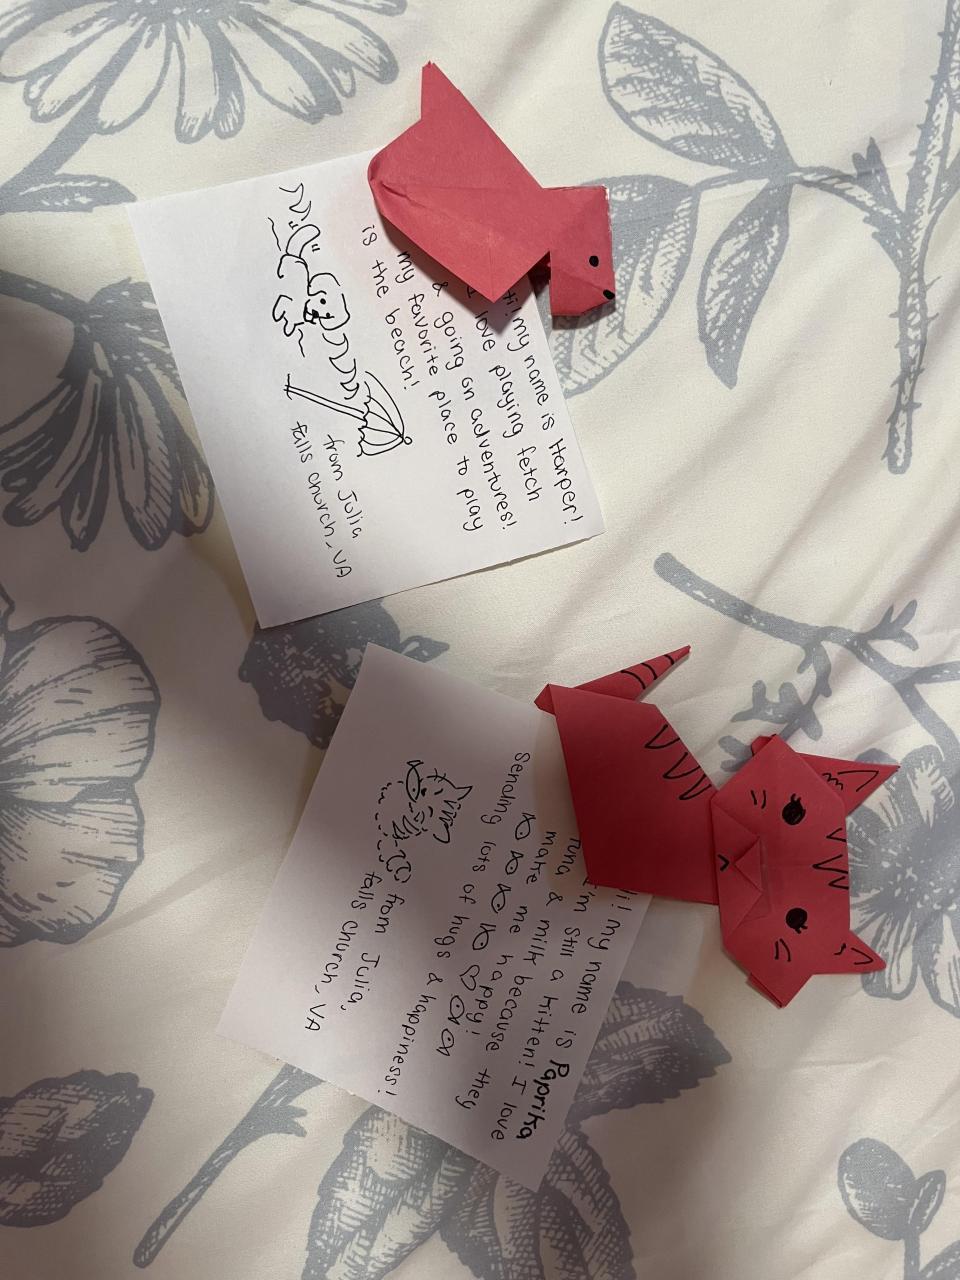 Hi! my name is Harper!
I love playing fetch
& going on adventures!
my favorite place to play
is the beach!
from Julia
falls church, VA
Hi! my name is Paprika
I'm still a kitten! I love
tuna & milk because they
make me happy!
sending lots of hugs & happiness!
from Julia,
falls church, VA